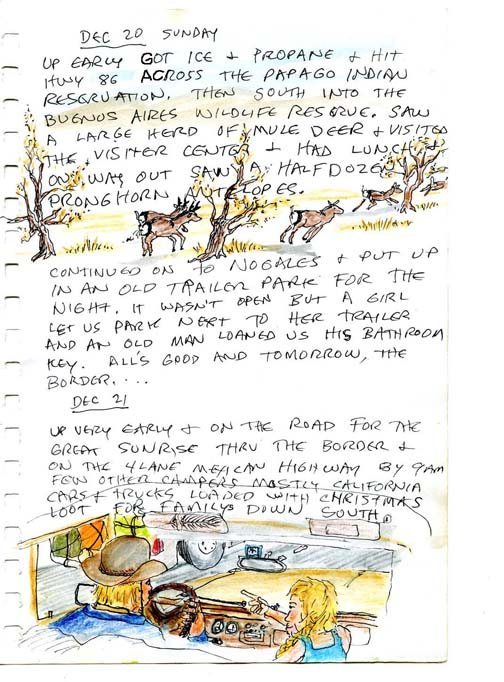 DEC 20 SUNDAY
UP EARLY GOT ICE & PROPANE & HIT
HWY 86 ACROSS THE PAPAGO INDIAN
RESERVATION. THEN SOUTH INTO THE
BUENOS AIRES WILDLIFE RESERVE. SAW
A LARGE HERD OF MULE DEER & VISITED
THE VISITER CENTER & HAD LUNCH &
ON WAY OUT SAW A HALF DOZEN
PRONGHORN ANTELOPES.
CONTINUED ON TO NOGALES & PUT UP
IN AN OLD TRAILER PARK FOR THE
NIGHT. IT WASN'T OPEN BUT A GIRL
LET US PARK NEXT TO HER TRAILER
AND AN OLD MAN LOANED US HIS BATHROOM
KEY. ALL'S GOOD AND TOMORROW, THE
BORDER....
DEC 21
UP VERY EARLY & ON THE ROAD FOR THE
GREAT SUNRISE THRU THE BORDER &
ON THE 4 LANE MEXICAN HIGHWAY BY 9AM
FEW OTHER CAMPERS MOSTLY CALIFORNIA
CARS & TRUCKS LOADED WITH CHRISTMAS
LOOT FOR FAMILYS DOWN SOUTH.